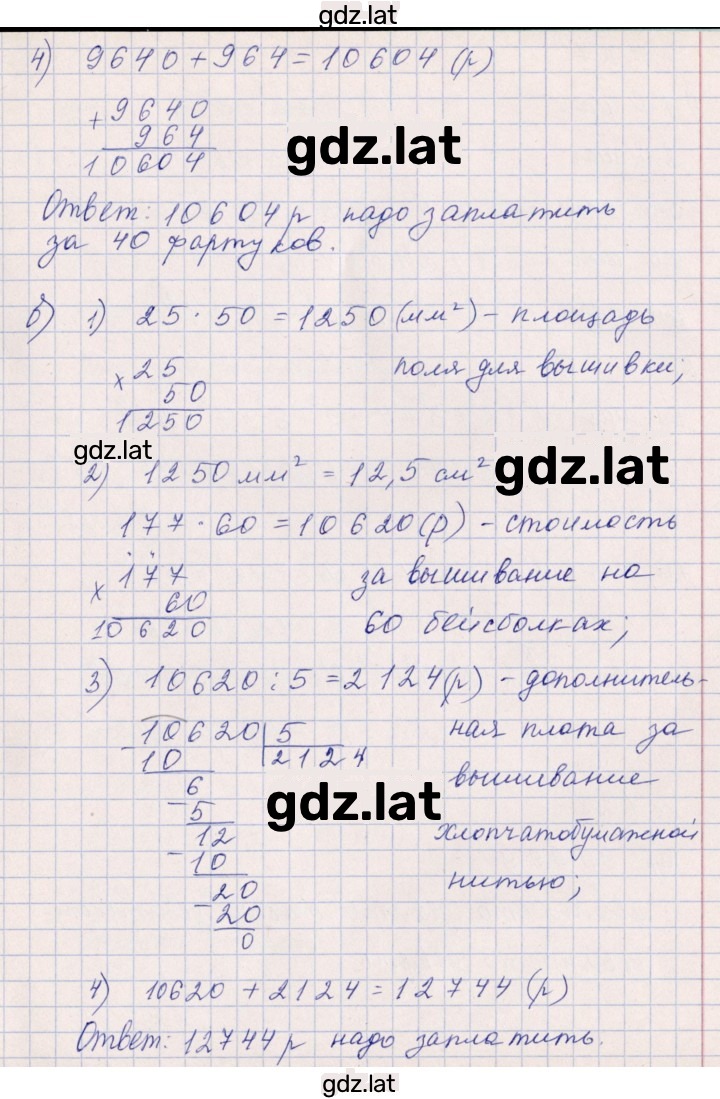 gdz.lat
4) 9640 + 964 = 10604 (р)
+ 9640
964
10604
gdz.lat
Ответ: 10604 р надо заплатить
за 40 фартуков.
б) 1) 25 · 50 = 1250 (мм²) - площадь
поля для вышивки;
× 25
50
1250
gdz.lat
2) 1250 мм² = 12,5 см²
gdz.lat
177 · 60 = 10620 (р) - стоимость
за вышивание на
60 бейсболках;
× 177
60
10620
3) 10620 : 5 = 2124 (р) - дополнитель-
ная плата за
вышивание
хлопчатобумажной
нитью;
- 10620 | 5
10 2124
6
- 5
12
- 10
20
- 20
0
gdz.lat
4) 10620 + 2124 = 12744 (р)
Ответ: 12744 р надо заплатить.
gdz.lat